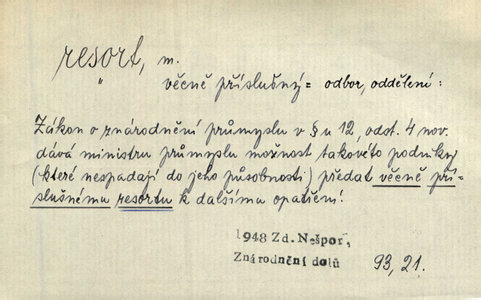 resort, m.
" věcně příslušný = odbor, oddělení:
Zákon o znárodnění průmyslu v § u 12, odst. 4 nov.
dává ministru průmyslu možnost takovéto podniky
(které nespadají do jeho působnosti) předat věcně pří-
slušnému resortu k dalšímu opatření!
1948 Zd. Nešpor,
Znárodnění dolů
93, 21.